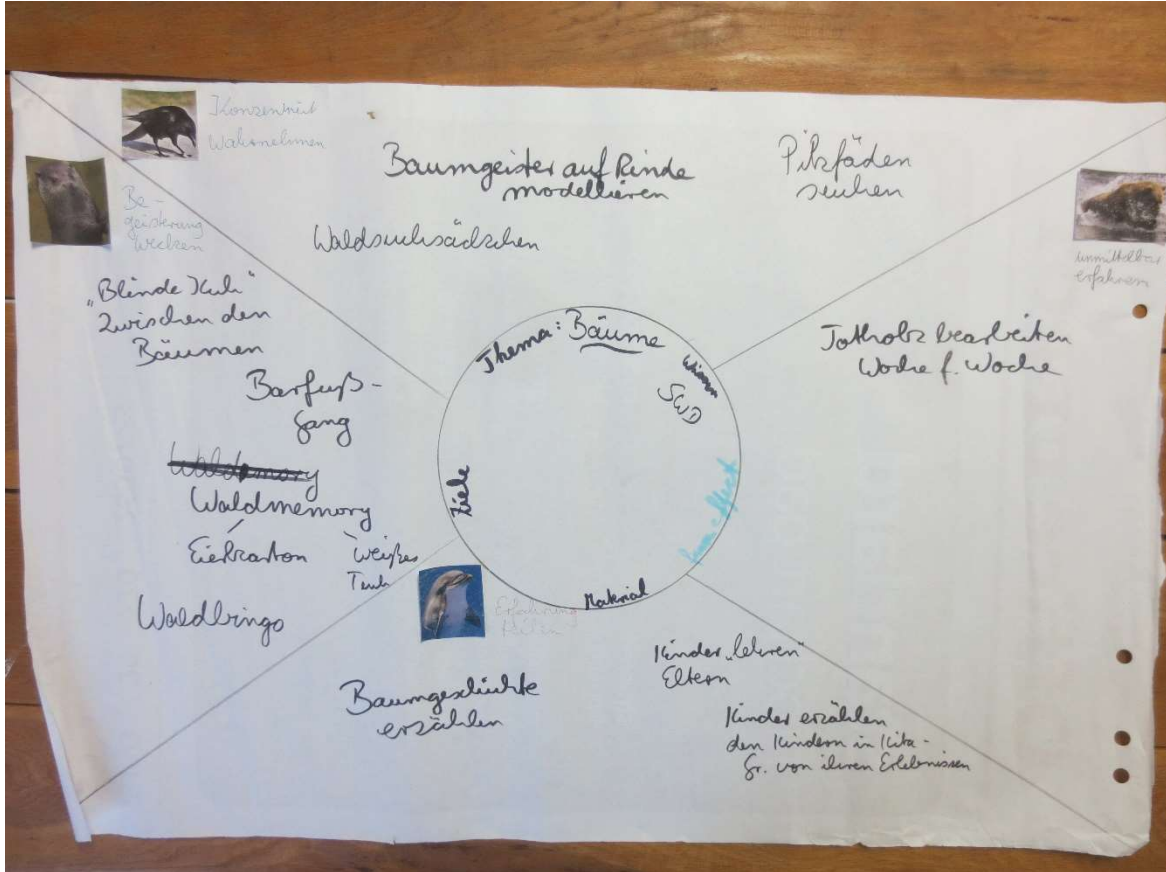 Konzentriert
Wahrnehmen
Be-
geisterung
wecken
Baumgeister auf Rinde
modellieren
Pilzfäden
suchen
Waldsuchsäckchen
unmittelbar
erfahren
"Blinde Kuh"
Zwischen den
Bäumen
Barfuß-
gang
Waldmemory
Eierkarton
weißes
Tuch
Waldbingo
Thema: Bäume
Wissen
Ziele
Material
Totholz bearbeiten
Woche f. Woche
Erfahrung
teilen
Baumgeschichte
erzählen
Kinder "lehren"
Eltern
Kinder erzählen
den Kindern in Kita-
Gr. von ihren Erlebnissen